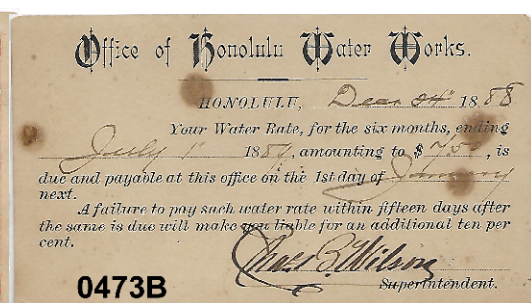 Office of Honolulu Water Works.
HONOLULU, Decr 24th 1888
Your Water Rate, for the six months, ending
July 1st 1889, amounting to $7.50, is
due and payable at this office on the 1st day of January
next.
A failure to pay such water rate within fifteen days after
the same is due will make you liable for an additional ten per
cent.
Chas B. Wilson
Superintendent.
0473B